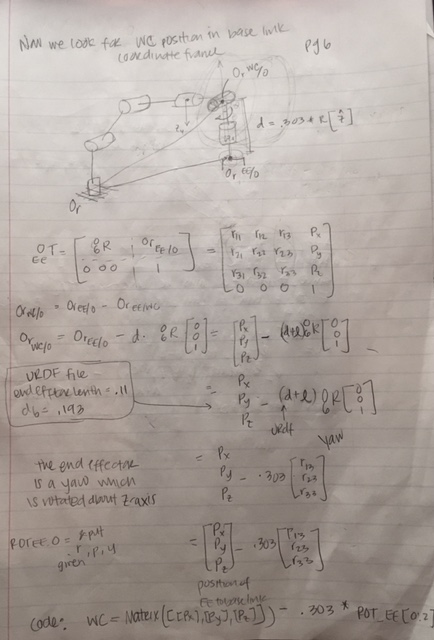 Now we look for WC position in base link
coordinate frame
pg 6
Or WC/0
d = .303 * R [ẑ]
Or EE/0
Or
0 EE T = [ 0 6 R | Or EE/0 ; 0 0 0 | 1 ] = [ r11 r12 r13 Px ; r21 r22 r23 Py ; r31 r32 r33 Pz ; 0 0 0 1 ]
Or WC/0 = Or EE/0 - Or EE/WC
Or WC/0 = Or EE/0 - d · 0 6 R [0 0 1] = [Px Py Pz] - (d+l) 0 6 R [0 0 1]
URDF file
end effector length = .11
d6 = .193
= Px Py Pz - (d+l) 0 6 R [0 0 1]
urdf
yaw
the end effector
is a yaw which
is rotated about z-axis
= Px Py Pz - .303 [r13 r23 r33]
ROTEE.0 = input
given r, p, y
= [Px Py Pz] - .303 [r13 r23 r33]
position of
EE to base link
code: WC = Matrix([[Px],[Py],[Pz]]) - .303 * ROT_EE[0:2]